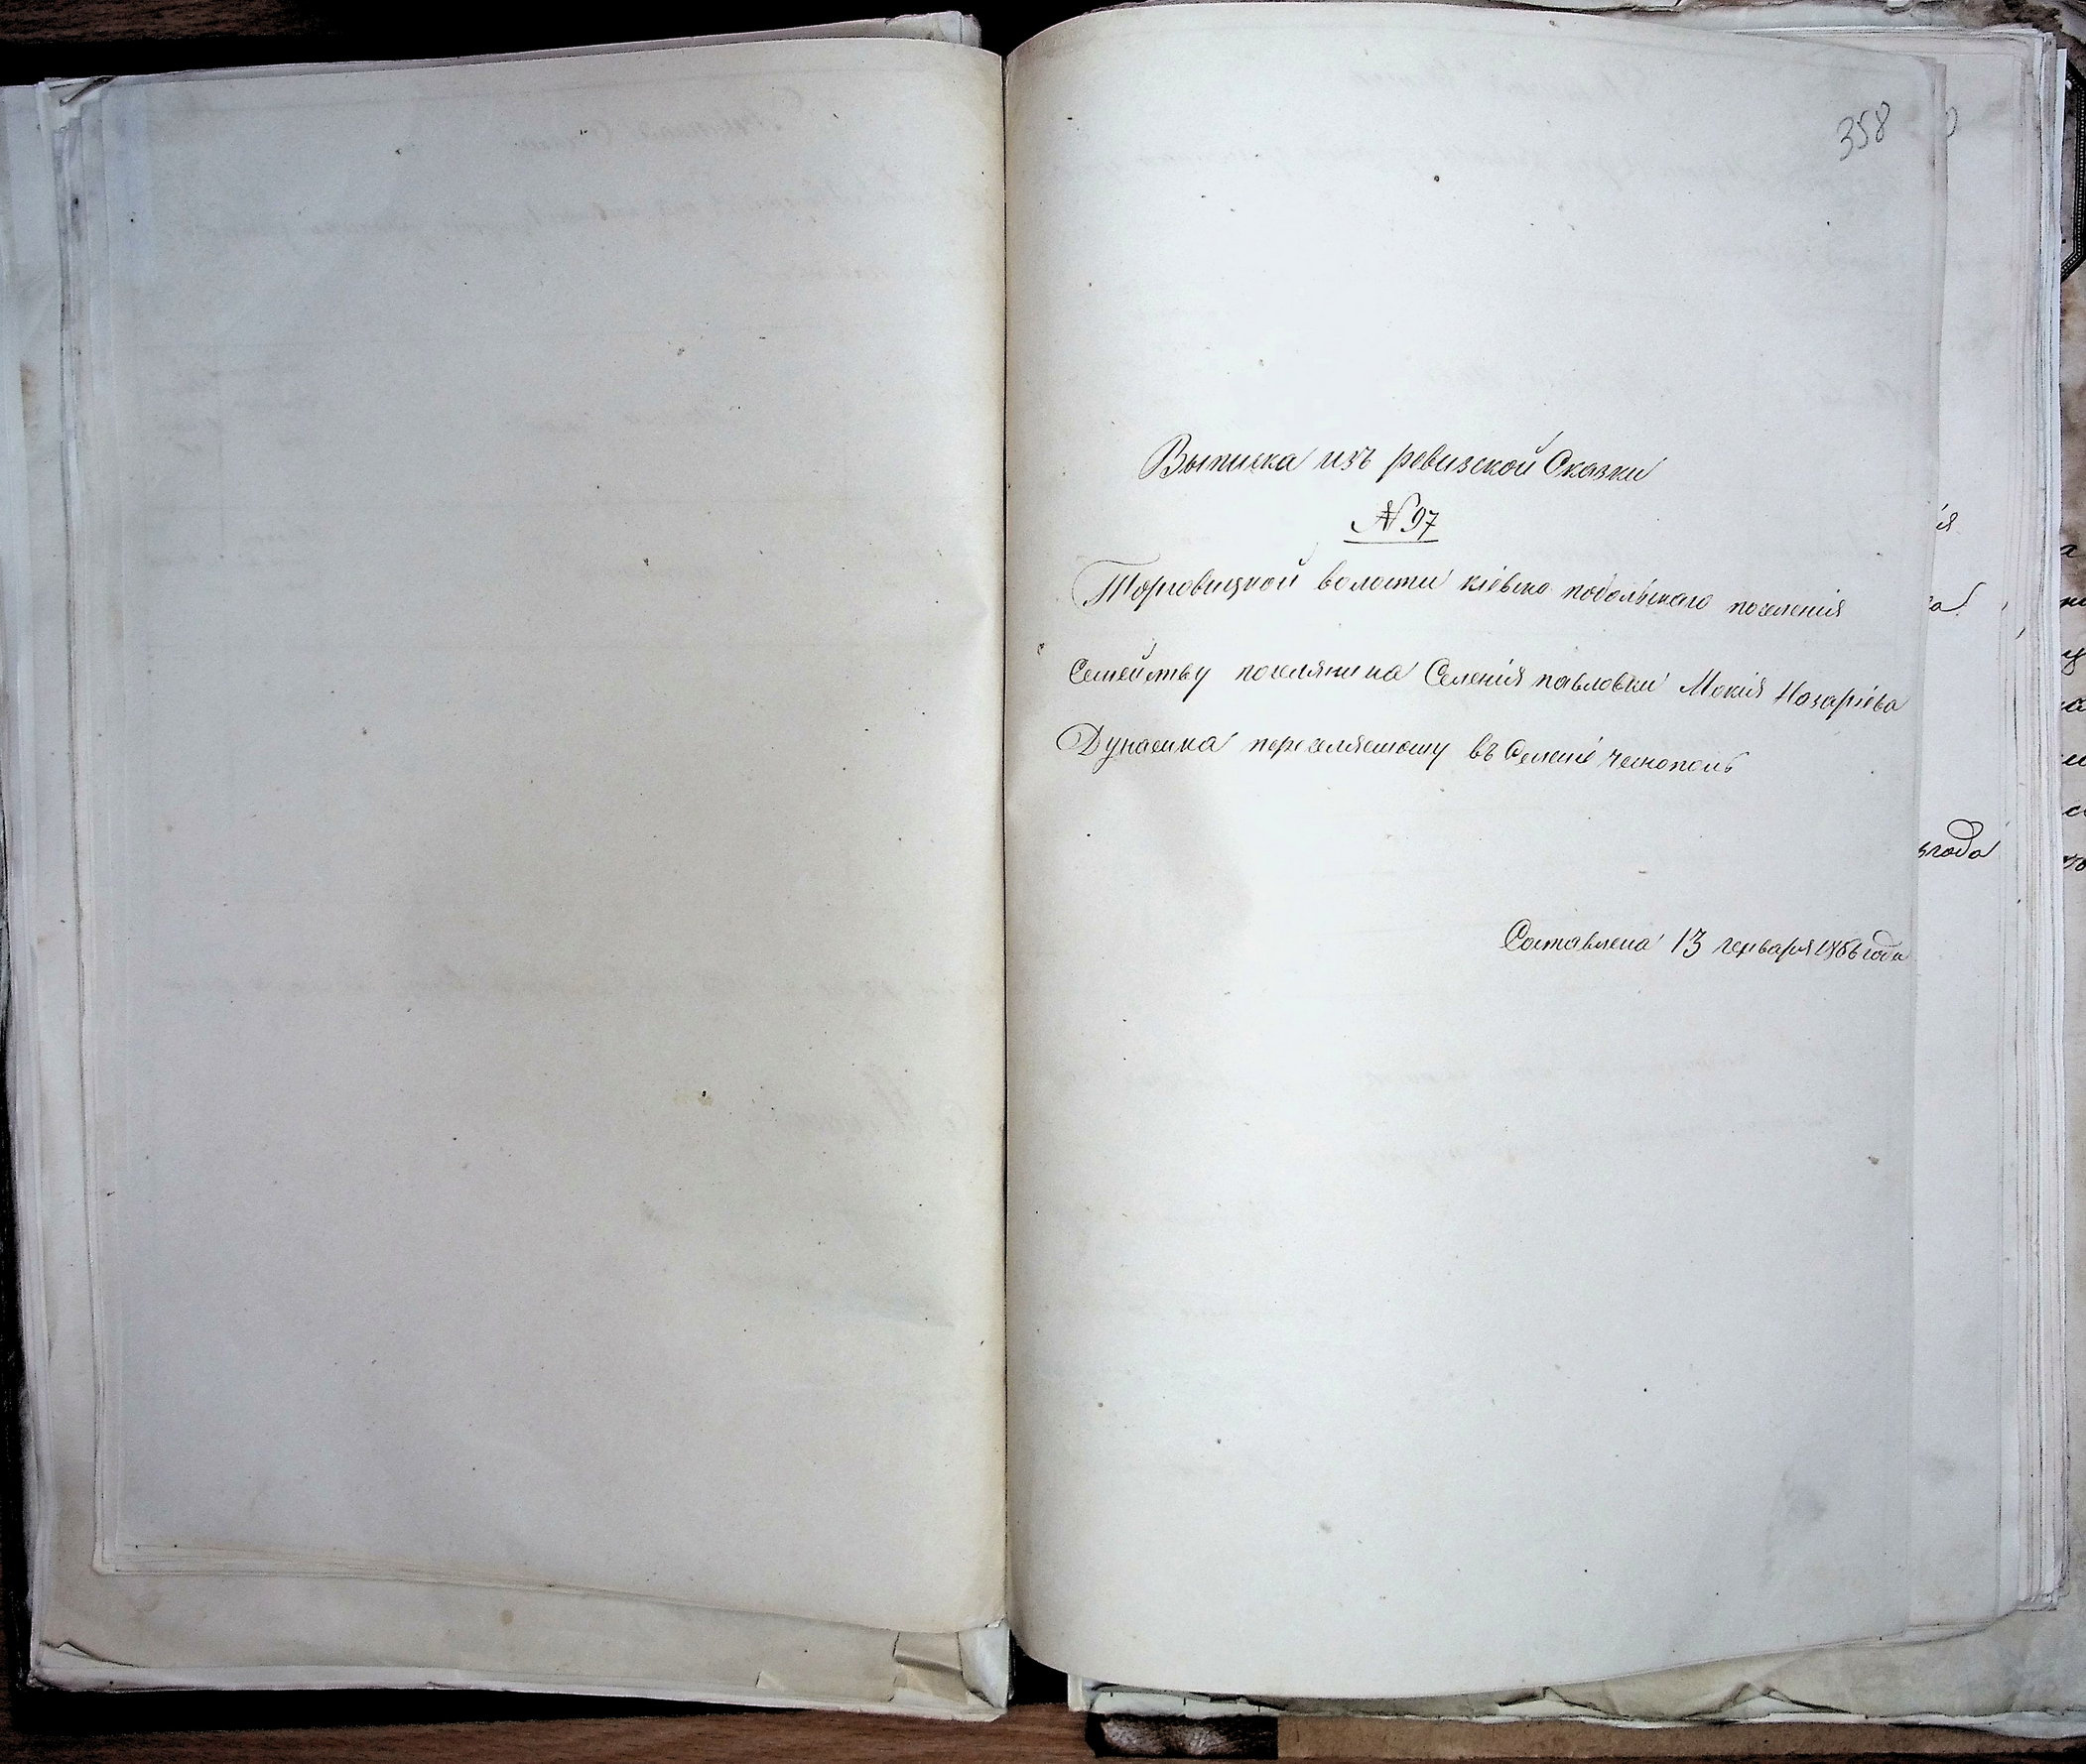 358
Выписка изъ ревизской Сказки
№ 97
Торговицкой волости кіевско подольскаго поселенія
Семейству поселянина Селенія павловки Мокія Назаріева
переселяемому въ Селеніе
Составлена 13 генваря 1866 года